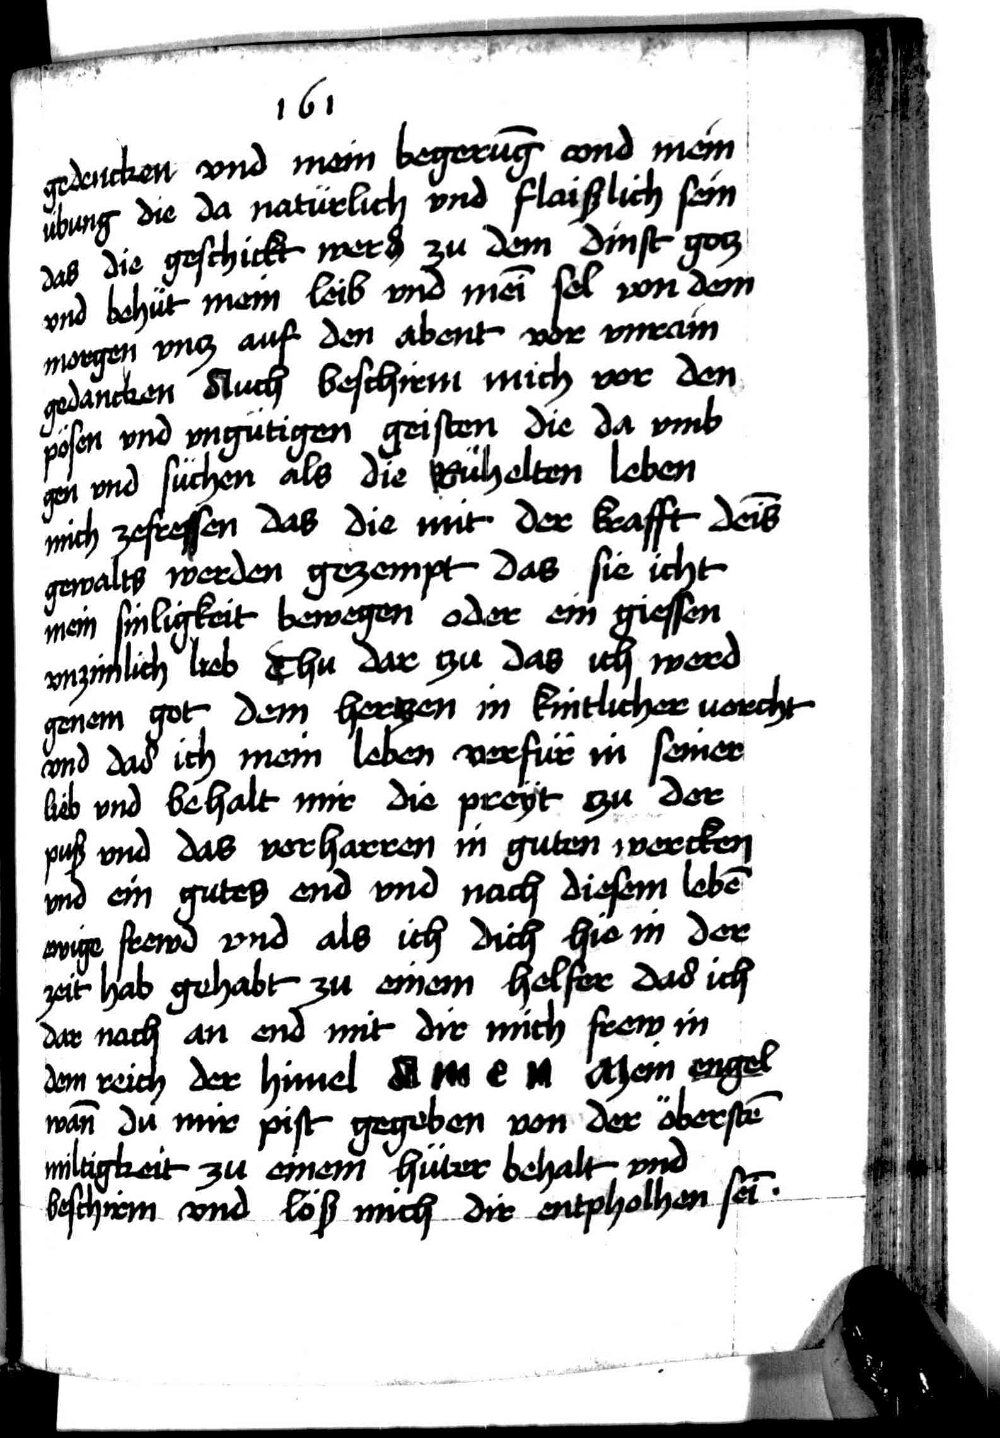 161
gedencken vnd mein begerūg vnd mein
übung die da natürlich vnd flaißlich sein
das die geschickt werd zu dem dinst gotz
vnd behüt mein leib vnd mei̅ sel von dem
morgen vntz auf den abent vor vnrain
gedancken Auch beschirm mich vor den
pösen vnd vngütigen geisten die da vmb
gen vnd süchen als die Rühelten leben
mich zefressen das die mit der krafft dei̅s
gewalts werden gezempt das sie icht
mein sinligkeit bewegen oder ein giessen
vnzimlich lieb Thu dar tzu das ich werd
genem got dem hertzen in kintlicher vorcht
vnd das ich mein leben verfür in seiner
lieb vnd behalt mir die preyt tzu der
puß vnd das verharren in guten wercken
vnd ein gutes end vnd nach diesem lebe̅
ewige frewd vnd als ich dich hie in der
zeit hab gehabt zu einem helfer das ich
dar nach an end mit dir mich frew in
dem reich der himel Amen Mein engel
wan̅ du mir pist gegeben von der öberste̅
miltigkeit zu einem hüter behalt vnd
beschirm vnd löß mich dir entpholhen sei̅.